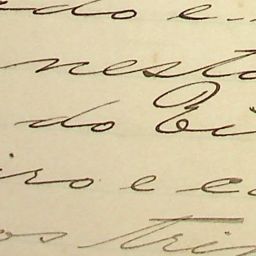 ado e
nesta
do Ti
iro e e
os tri